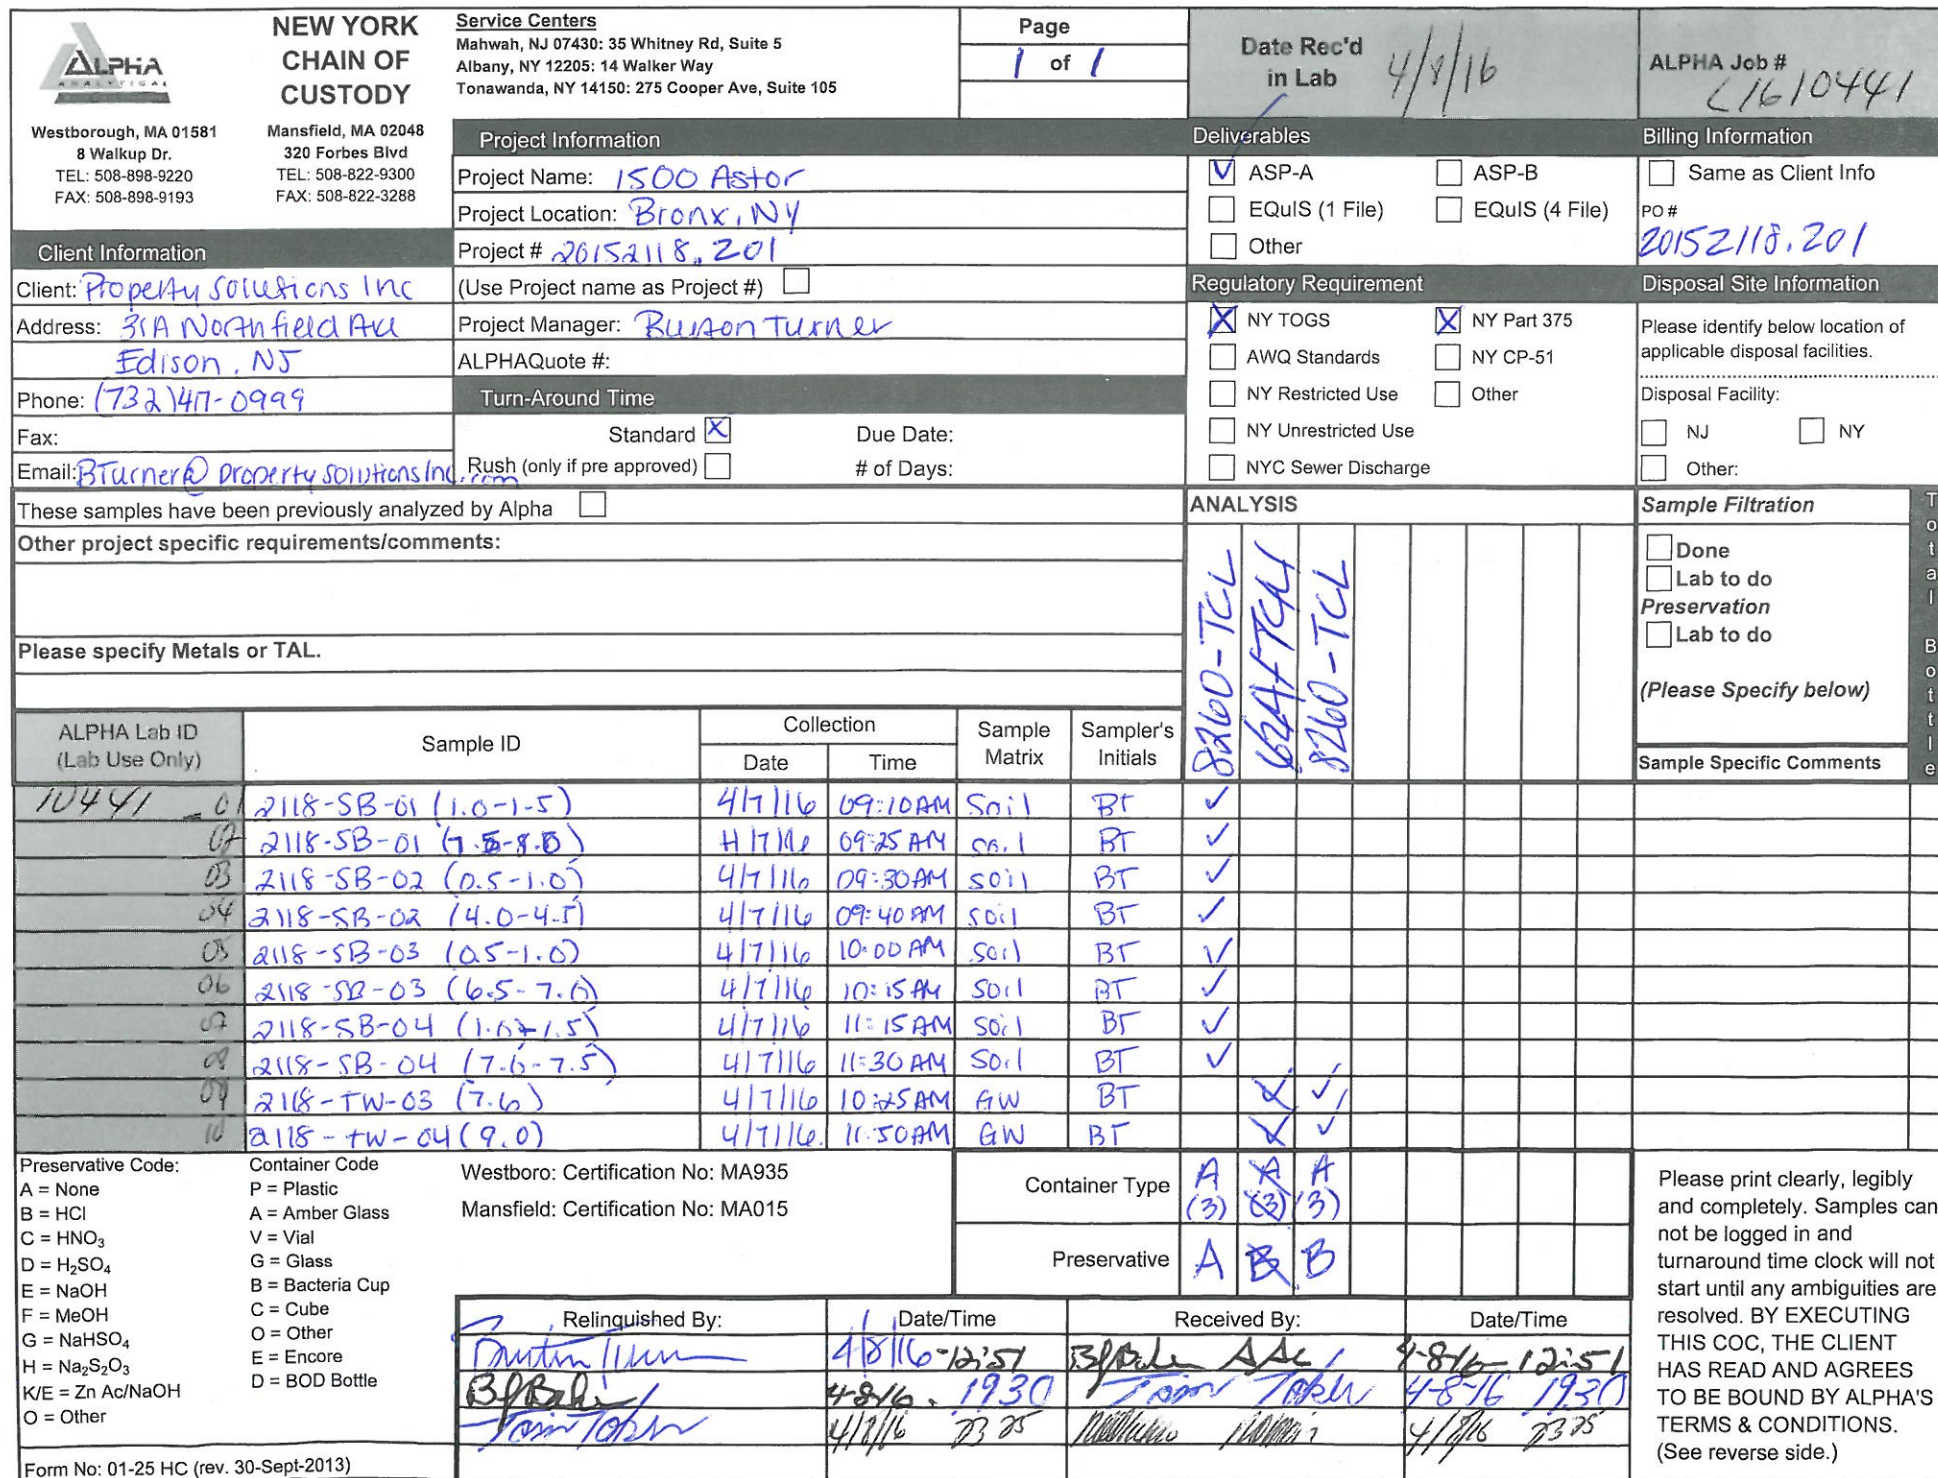 ALPHA
ANALYTICAL
NEW YORK
CHAIN OF
CUSTODY
Westborough, MA 01581
8 Walkup Dr.
TEL: 508-898-9220
FAX: 508-898-9193
Mansfield, MA 02048
320 Forbes Blvd
TEL: 508-822-9300
FAX: 508-822-3288
Service Centers
Mahwah, NJ 07430: 35 Whitney Rd, Suite 5
Albany, NY 12205: 14 Walker Way
Tonawanda, NY 14150: 275 Cooper Ave, Suite 105
Page
1 of 1
Date Rec'd
in Lab 4/8/16
ALPHA Job #
L1610441
Client Information
Client: Property Solutions Inc
Address: 31A Northfield Ave
Edison, NJ
Phone: (732) 417-0999
Fax:
Email: BTurner@propertysolutionsInc.com
Project Information
Project Name: 1500 Astor
Project Location: Bronx, NY
Project # 20152118.201
(Use Project name as Project #)
Project Manager: Burton Turner
ALPHAQuote #:
Turn-Around Time
Standard X Due Date:
Rush (only if pre approved) # of Days:
Deliverables
ASP-A ASP-B
EQuIS (1 File) EQuIS (4 File)
Other
Regulatory Requirement
NY TOGS NY Part 375
AWQ Standards NY CP-51
NY Restricted Use Other
NY Unrestricted Use
NYC Sewer Discharge
Billing Information
Same as Client Info
PO #
20152118.201
Disposal Site Information
Please identify below location of
applicable disposal facilities.
Disposal Facility:
NJ NY
Other:
These samples have been previously analyzed by Alpha
Other project specific requirements/comments:
Please specify Metals or TAL.
ANALYSIS
8260-TCL
8260-TCL
Sample Filtration
Done
Lab to do
Preservation
Lab to do
(Please Specify below)
Sample Specific Comments
Total Bottle
ALPHA Lab ID
(Lab Use Only)
Sample ID
Collection
Date Time
Sample
Matrix
Sampler's
Initials
10441-01 2118-SB-01 (1.0-1.5) 4/7/16 09:10AM Soil BT ✓
02 2118-SB-01 (7.5-8.0) 4/7/16 09:25 AM Soil BT ✓
03 2118-SB-02 (0.5-1.0) 4/7/16 09:30AM Soil BT ✓
04 2118-SB-02 (4.0-4.5) 4/7/16 09:40 AM Soil BT ✓
05 2118-SB-03 (0.5-1.0) 4/7/16 10:00 AM Soil BT ✓
06 2118-SB-03 (6.5-7.0) 4/7/16 10:15 AM Soil BT ✓
07 2118-SB-04 (1.0-1.5) 4/7/16 11:15AM Soil BT ✓
08 2118-SB-04 (7.0-7.5) 4/7/16 11:30 AM Soil BT ✓
09 2118-TW-03 (7.0) 4/7/16 10:25AM GW BT ✓
10 2118-TW-04 (9.0) 4/7/16 11:50AM GW BT ✓
Preservative Code:
A = None
B = HCl
C = HNO3
D = H2SO4
E = NaOH
F = MeOH
G = NaHSO4
H = Na2S2O3
K/E = Zn Ac/NaOH
O = Other
Container Code
P = Plastic
A = Amber Glass
V = Vial
G = Glass
B = Bacteria Cup
C = Cube
O = Other
E = Encore
D = BOD Bottle
Westboro: Certification No: MA935
Mansfield: Certification No: MA015
Container Type A (3) A (3) A (3)
Preservative A B B
Relinquished By: Date/Time Received By: Date/Time
4/8/16-12:51 4-8-16-12:51
4-8-16. 1930 4-8-16 1930
4/8/16 2325 4/8/16 2325
Please print clearly, legibly
and completely. Samples can
not be logged in and
turnaround time clock will not
start until any ambiguities are
resolved. BY EXECUTING
THIS COC, THE CLIENT
HAS READ AND AGREES
TO BE BOUND BY ALPHA'S
TERMS & CONDITIONS.
(See reverse side.)
Form No: 01-25 HC (rev. 30-Sept-2013)